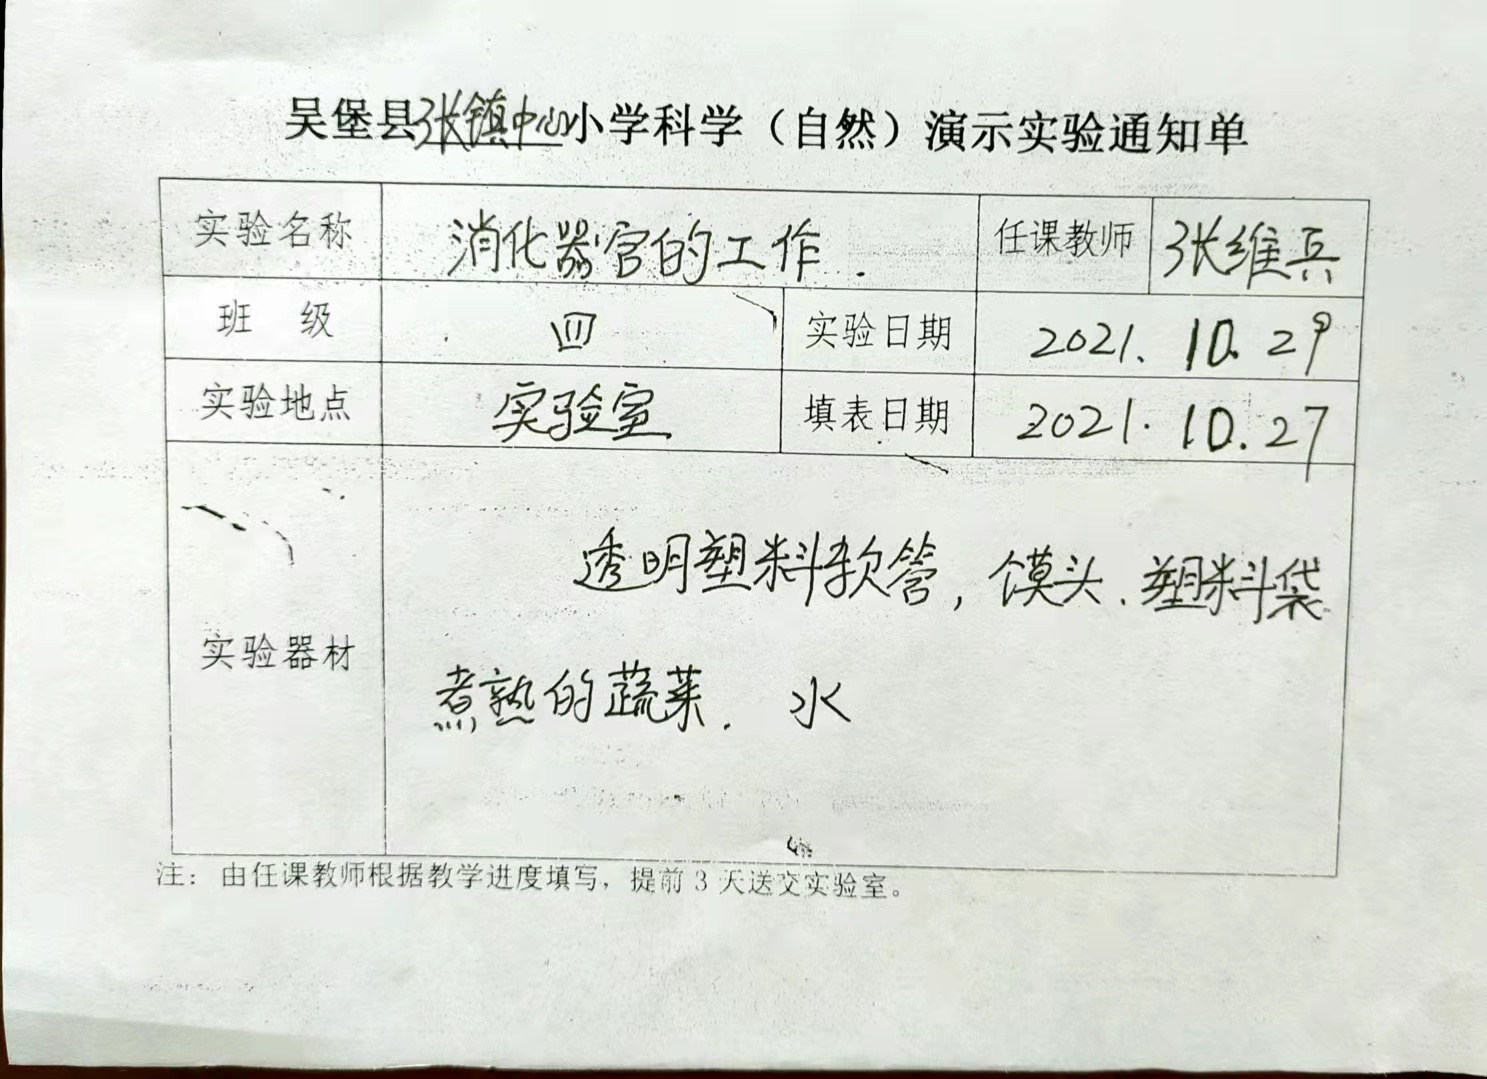 吴堡县张镇中心小学科学（自然）演示实验通知单
实验名称 消化器官的工作. 任课教师 张维兵
班 级 四 实验日期 2021. 10. 29
实验地点 实验室 填表日期 2021. 10. 27
透明塑料软管, 馍头. 塑料袋
实验器材
煮熟的蔬菜. 水
注：由任课教师根据教学进度填写，提前3天送交实验室。